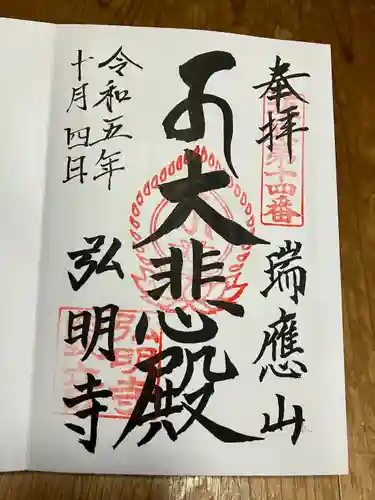 奉拝
第十四番
瑞應山
大悲殿
令和五年
十月四日
弘明寺
弘明寺